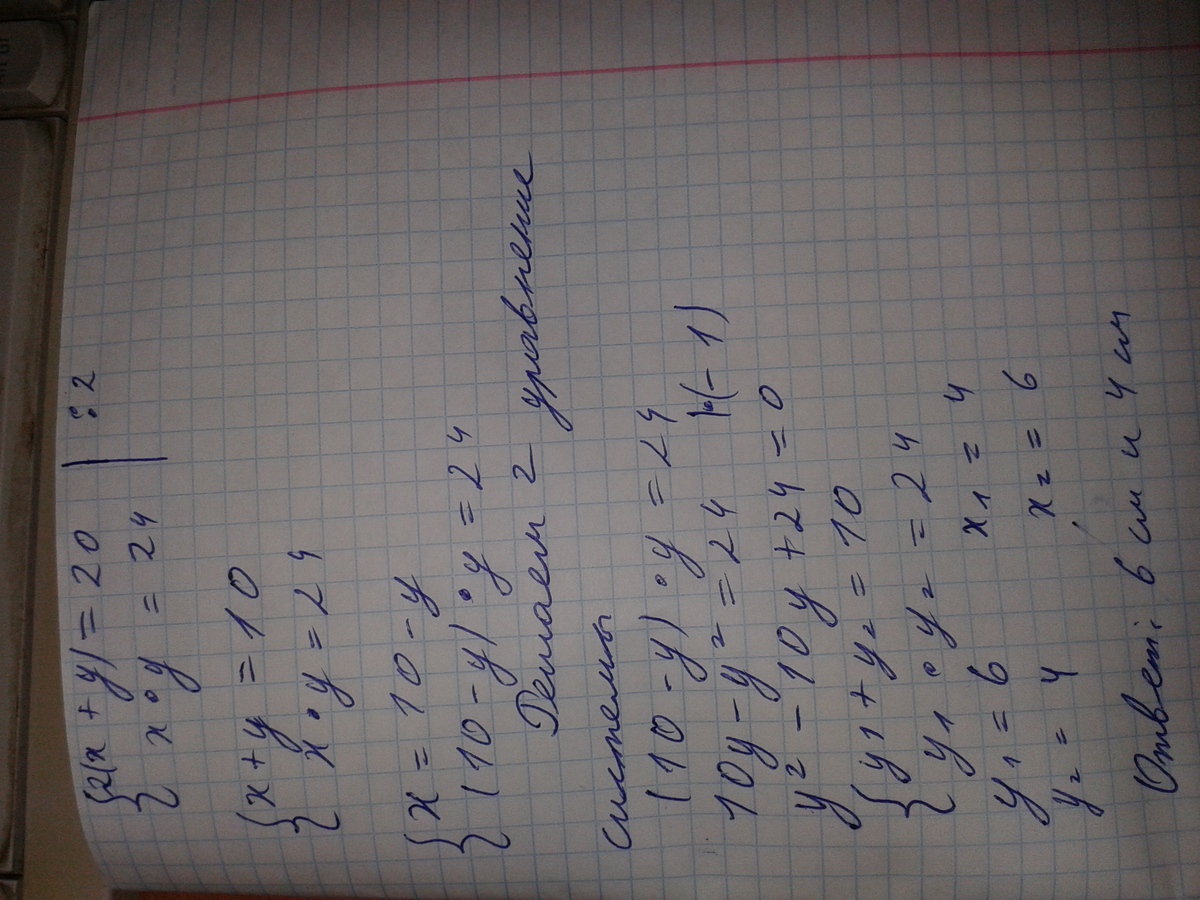 {2(x + y) = 20 | : 2
x · y = 24
{x + y = 10
x · y = 24
{x = 10 - y
(10 - y) · y = 24
Решаем 2 уравнение
системы
(10 - y) · y = 24
10y - y² = 24 |·(-1)
y² - 10y + 24 = 0
{y1 + y2 = 10
y1 · y2 = 24
y1 = 6 x1 = 4
y2 = 4 x2 = 6
Ответ: 6 см и 4 см